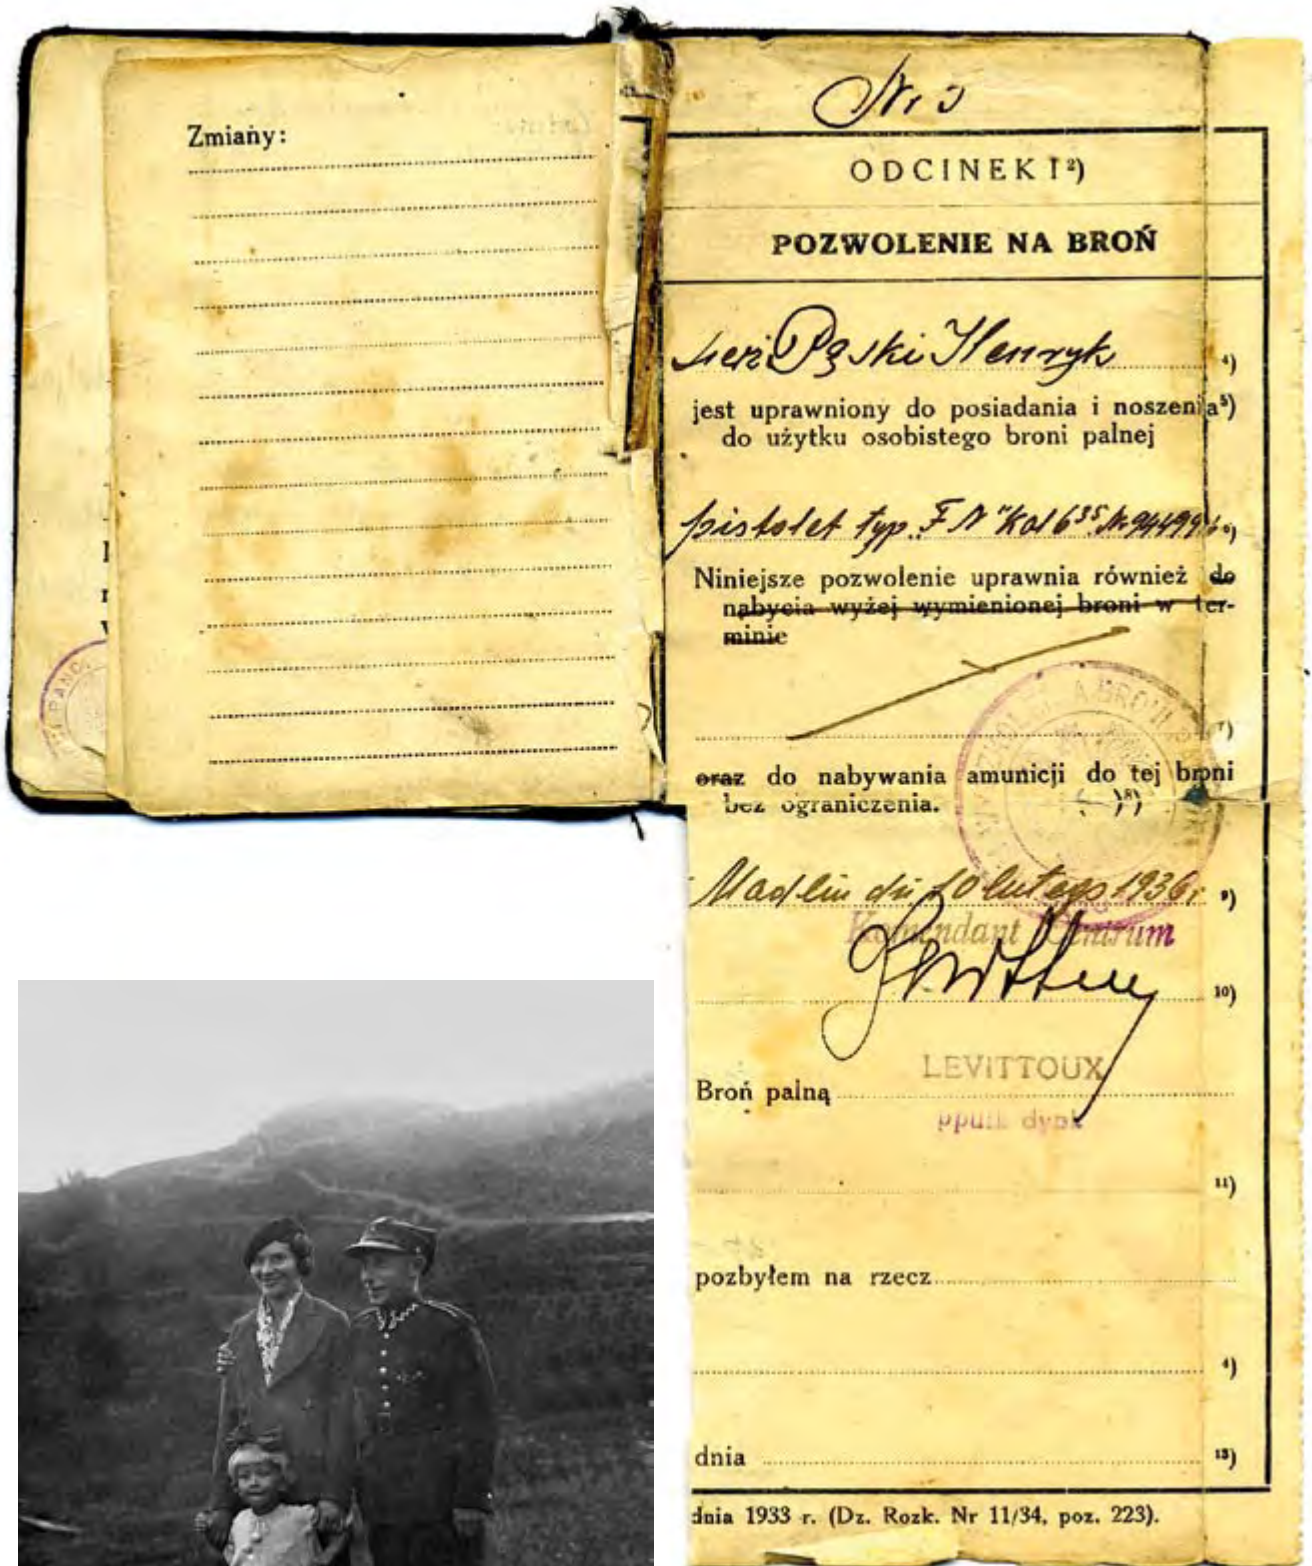 Zmiany:
Nr 3
ODCINEK I²)
POZWOLENIE NA BROŃ
Pąski Henryk ⁴)
jest uprawniony do posiadania i noszenia⁵)
do użytku osobistego broni palnej
pistolet typ. "FN" Kal 6³⁵ Nr ⁶)
Niniejsze pozwolenie uprawnia również do
nabycia wyżej wymienionej broni w ter-
minie
⁷)
oraz do nabywania amunicji do tej broni
bez ograniczenia. ⁸)
Modlin dn 10 lutego 1936r ⁹)
Komendant Centrum
¹⁰)
LEVITTOUX
Broń palną
ppułk dypl
¹¹)
pozbyłem na rzecz
⁴)
dnia ¹³)
dnia 1933 r. (Dz. Rozk. Nr 11/34, poz. 223).
PANC.